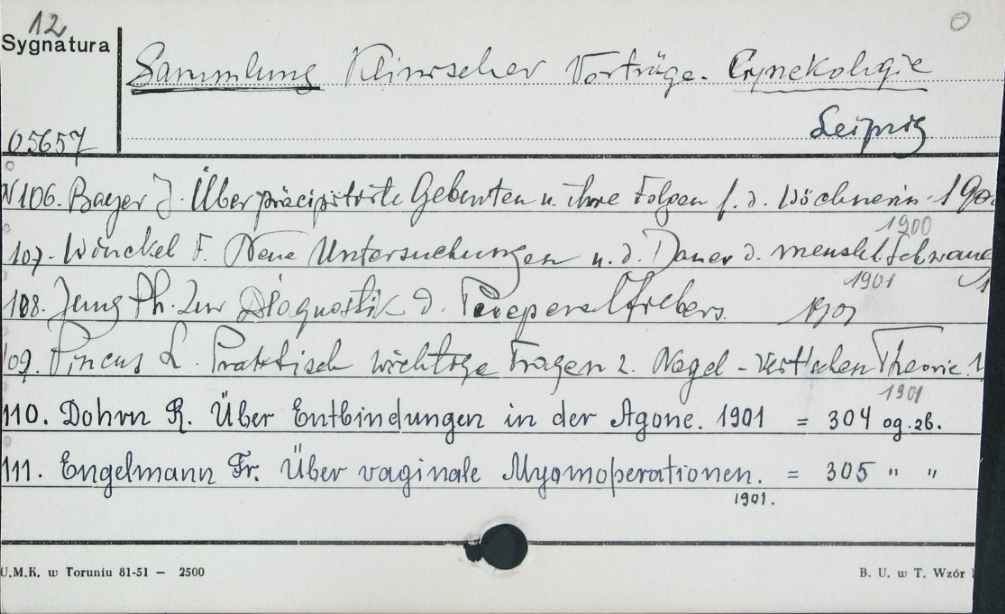 12
Sygnatura
Sammlung Klinischer Vorträge. Gynekologie
Leipzig
05657
N 106. Bayer J. Über präcipitirte Geburten u. ihre Folgen f. d. Wöchnerin. 190
1900
107. Winckel F. Neue Untersuchungen u. d. Dauer d. menschl. Schwang
1901
108. Jung Ph. Zur Diagnostik d. Puerperalfiebers. 1901
109. Pincus L. Praktisch wichtige Fragen z. Nagel-Veit'schen Theorie. 1
1901
110. Dohrn R. Über Entbindungen in der Agone. 1901 = 304 og. zb.
111. Engelmann Fr. Über vaginale Myomoperationen. = 305 " "
1901.
U.M.K. w Toruniu 81-51 – 2500
B. U. w T. Wzór